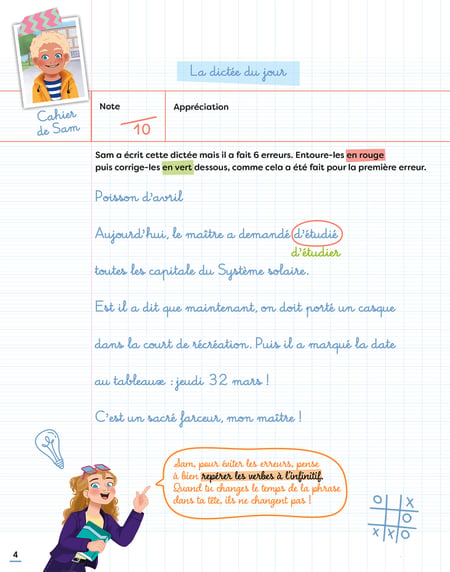 La dictée du jour
Cahier
de Sam
Note
Appréciation
10
Sam a écrit cette dictée mais il a fait 6 erreurs. Entoure-les en rouge
puis corrige-les en vert dessous, comme cela a été fait pour la première erreur.
Poisson d'avril
Aujourd'hui, le maître a demandé d'étudié
d'étudier
toutes les capitale du Système solaire.
Est il a dit que maintenant, on doit porté un casque
dans la court de récréation. Puis il a marqué la date
au tableaux : jeudi 32 mars !
C'est un sacré farceur, mon maître !
Sam, pour éviter les erreurs, pense
à bien repérer les verbes à l'infinitif.
Quand tu changes le temps de la phrase
dans ta tête, ils ne changent pas !
O X
O
X X O
4